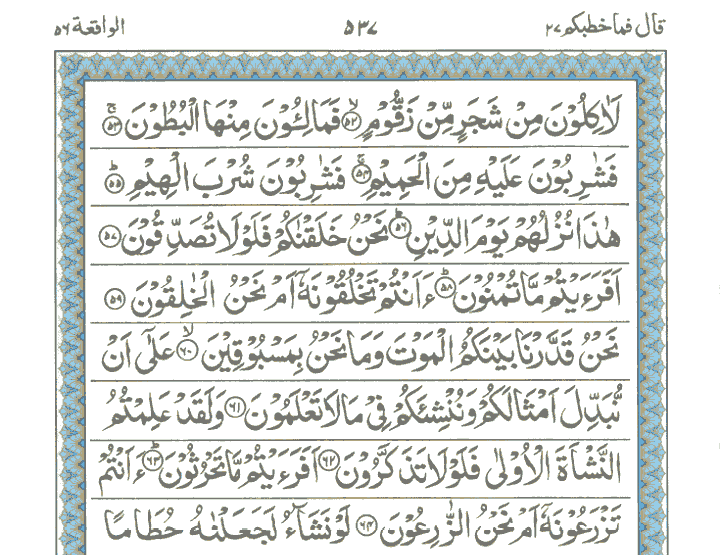 قال فما خطبكم ٢٧ ٥٣٧ الواقعة ٥٦
لَاٰكِلُوۡنَ مِنۡ شَجَرٍ مِّنۡ زَقُّوۡمٍۙ‏ ﴿۵۲﴾ فَمَالِــُٔـوۡنَ مِنۡهَا الۡبُطُوۡنَۚ‏ ﴿۵۳﴾
فَشٰرِبُوۡنَ عَلَيۡهِ مِنَ الۡحَمِيۡمِۚ‏ ﴿۵۴﴾ فَشٰرِبُوۡنَ شُرۡبَ الۡهِيۡمِؕ‏ ﴿۵۵﴾
هٰذَا نُزُلُهُمۡ يَوۡمَ الدِّيۡنِؕ‏ ﴿۵۶﴾ نَحۡنُ خَلَقۡنٰكُمۡ فَلَوۡلَا تُصَدِّقُوۡنَ‏ ﴿۵۷﴾
اَفَرَءَيۡتُمۡ مَّا تُمۡنُوۡنَؕ‏ ﴿۵۸﴾ ءَاَنۡتُمۡ تَخۡلُقُوۡنَهٗۤ اَمۡ نَحۡنُ الۡخٰلِقُوۡنَ‏ ﴿۵۹﴾
نَحۡنُ قَدَّرۡنَا بَيۡنَكُمُ الۡمَوۡتَ وَمَا نَحۡنُ بِمَسۡبُوۡقِيۡنَۙ‏ ﴿۶۰﴾ عَلٰٓى اَنۡ
نُّبَدِّلَ اَمۡثَالَكُمۡ وَنُنۡشِئَكُمۡ فِىۡ مَا لَا تَعۡلَمُوۡنَ‏ ﴿۶۱﴾ وَلَقَدۡ عَلِمۡتُمُ
النَّشۡاَةَ الۡاُوۡلٰى فَلَوۡلَا تَذَكَّرُوۡنَ‏ ﴿۶۲﴾ اَفَرَءَيۡتُمۡ مَّا تَحۡرُثُوۡنَؕ‏ ﴿۶۳﴾ ءَاَنۡتُمۡ
تَزۡرَعُوۡنَهٗۤ اَمۡ نَحۡنُ الزّٰرِعُوۡنَ‏ ﴿۶۴﴾ لَوۡ نَشَآءُ لَجَعَلۡنٰهُ حُطَامًا